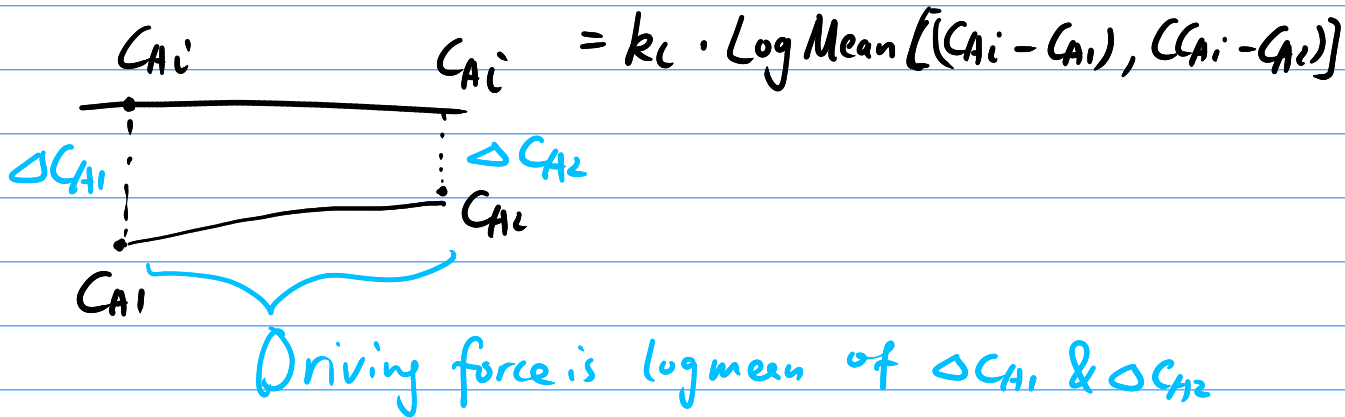 C_Ai C_Ai = k_c · Log Mean [(C_Ai - C_A1), (C_Ai - C_A2)]
ΔC_A1 ΔC_A2
C_A2
C_A1
Driving force is log mean of ΔC_A1 & ΔC_A2